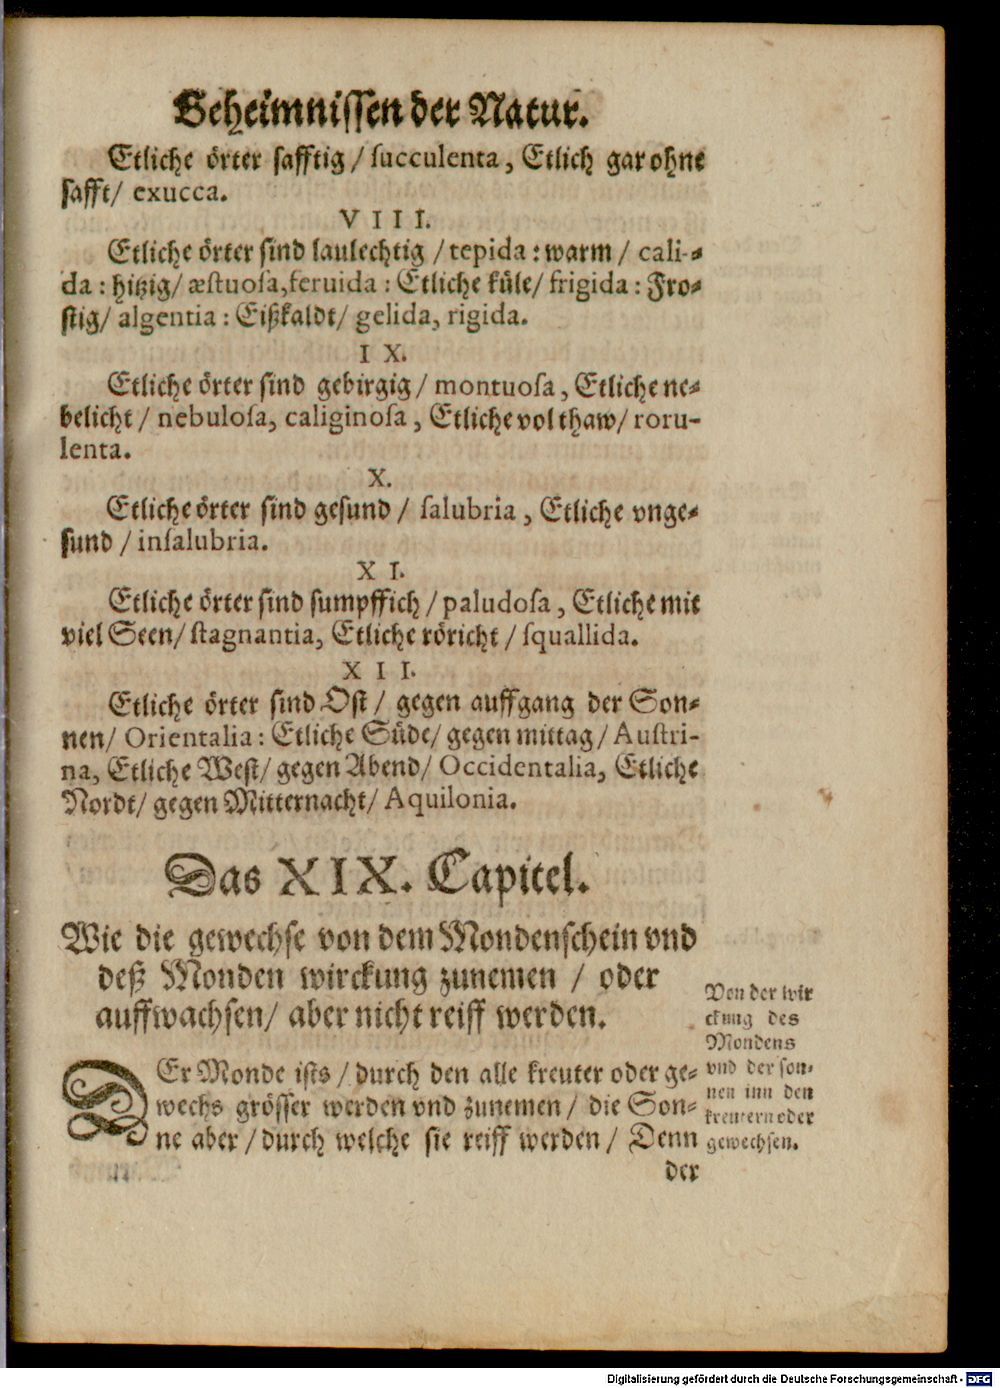 Geheimnissen der Natur.
Etliche örter safftig / succulenta, Etlich gar ohne
safft / exucca.
VIII.
Etliche örter sind laulechtig / tepida : warm / cali-
da : hitzig / æstuosa, feruida : Etliche küle / frigida : Fro-
stig / algentia : Eißkaldt / gelida, rigida.
IX.
Etliche örter sind gebirgig / montuosa, Etliche ne-
belicht / nebulosa, caliginosa, Etliche vol thaw / roru-
lenta.
X.
Etliche örter sind gesund / salubria, Etliche vnge-
sund / insalubria.
XI.
Etliche örter sind sumpffich / paludosa, Etliche mit
viel Seen / stagnantia, Etliche röricht / squallida.
XII.
Etliche örter sind Ost / gegen auffgang der Son-
nen / Orientalia : Etliche Süde / gegen mittag / Austri-
na, Etliche West / gegen Abend / Occidentalia, Etliche
Nordt / gegen Mitternacht / Aquilonia.
Das XIX. Capitel.
Wie die gewechse von dem Mondenschein vnd
deß Monden wirckung zunemen / oder
auffwachsen / aber nicht reiff werden.
DEr Monde ists / durch den alle kreuter oder ge-
wechs grösser werden vnd zunemen / die Son-
ne aber / durch welche sie reiff werden / Denn
der
Von der wir
ckung des
Mondens
vnd der son-
nen inn den
kreutern oder
gewechsen.
Digitalisierung gefördert durch die Deutsche Forschungsgemeinschaft - DFG